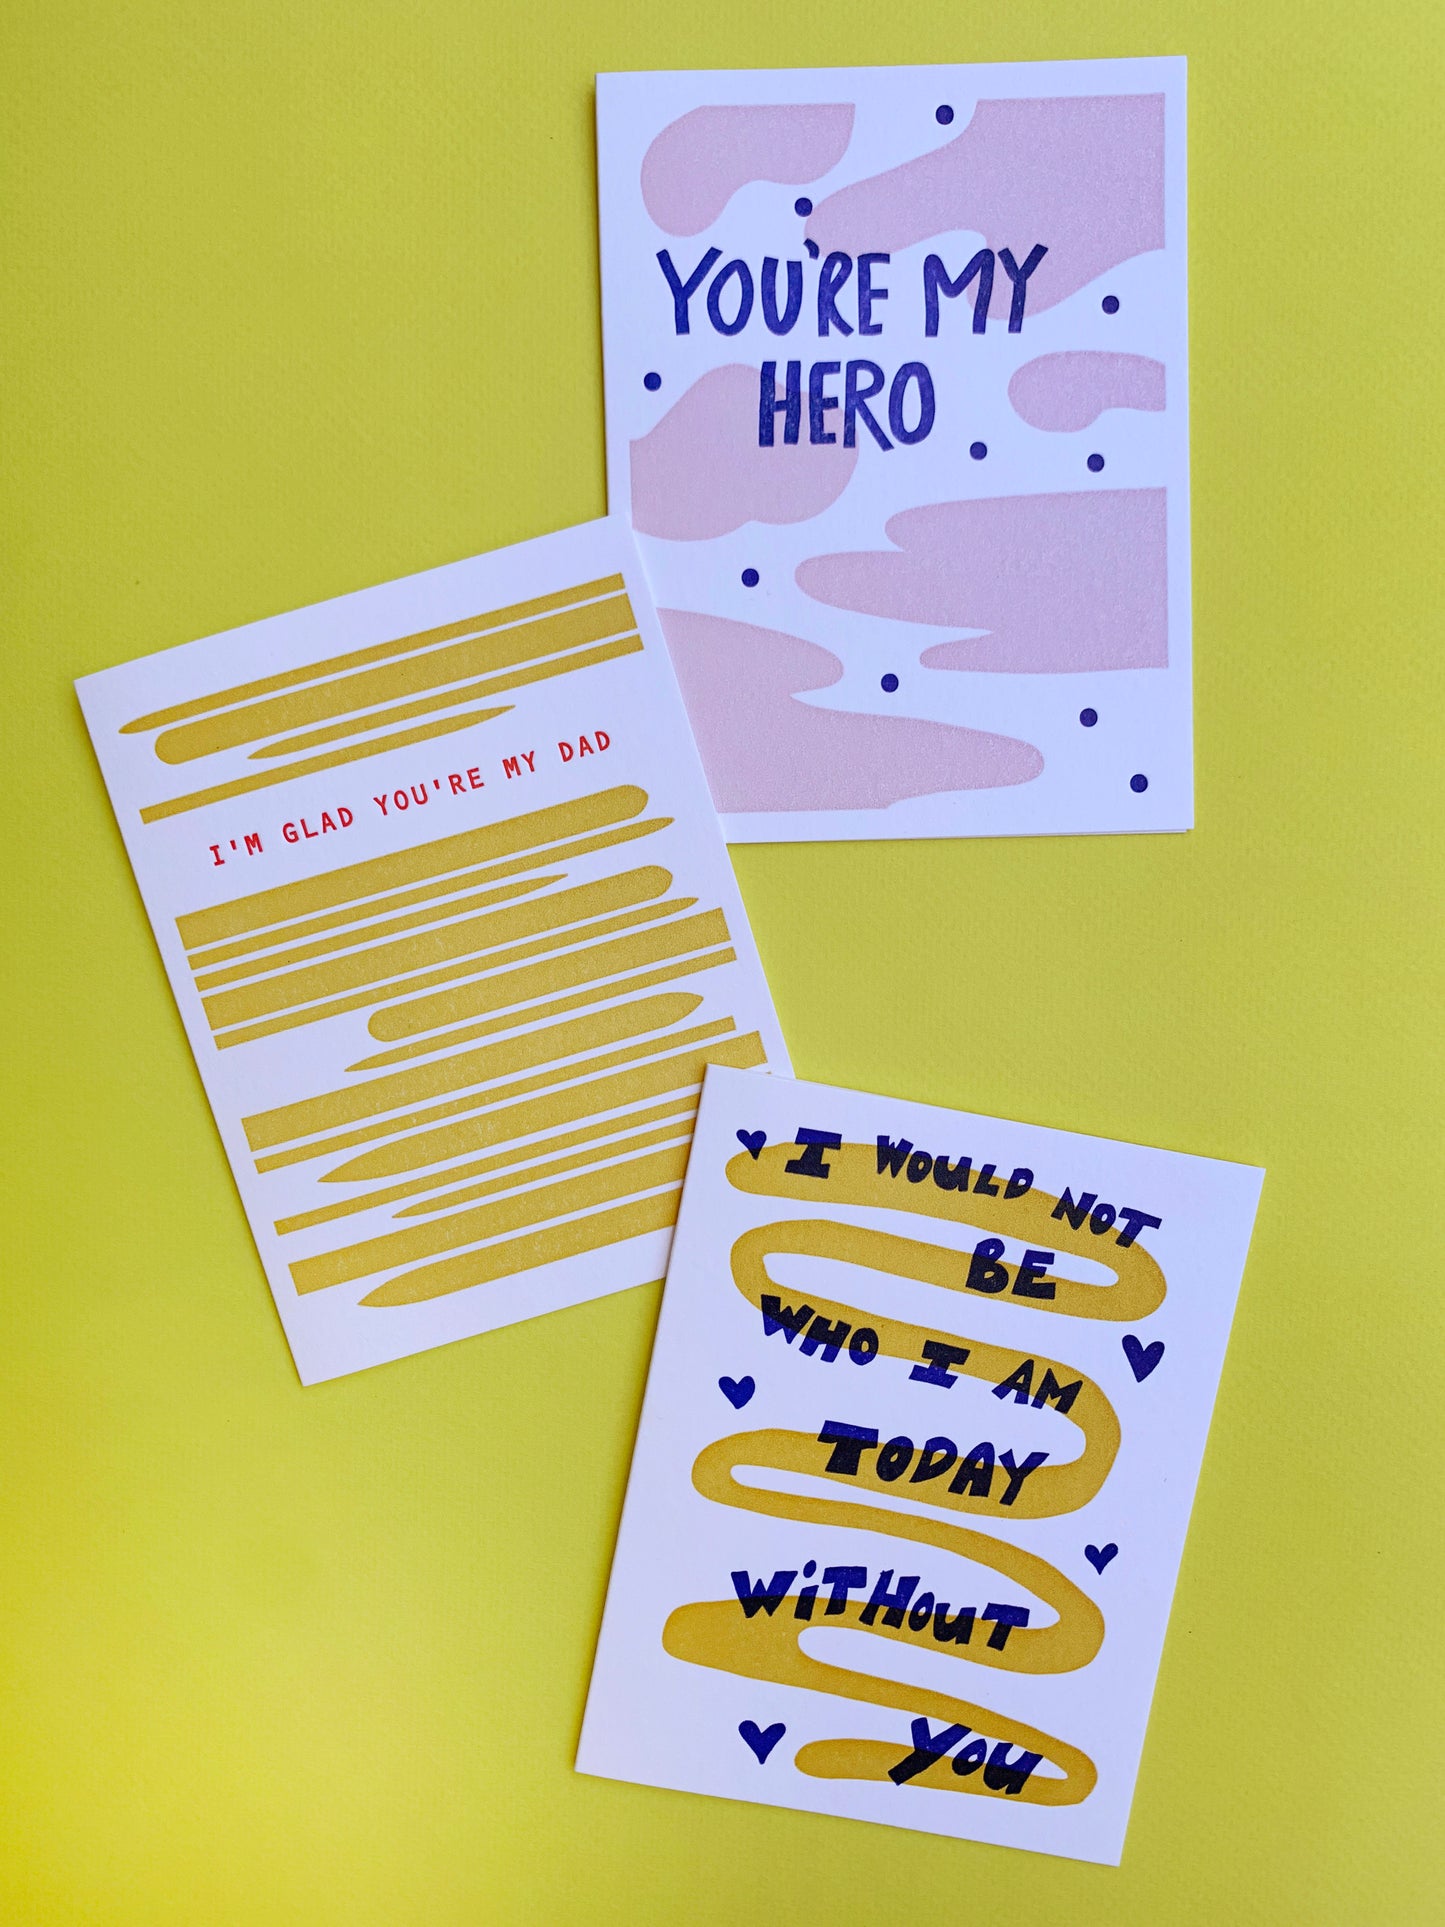 YOU'RE MY
HERO
I'M GLAD YOU'RE MY DAD
I WOULD NOT
BE
WHO I AM
TODAY
WiTHOUT
YOU